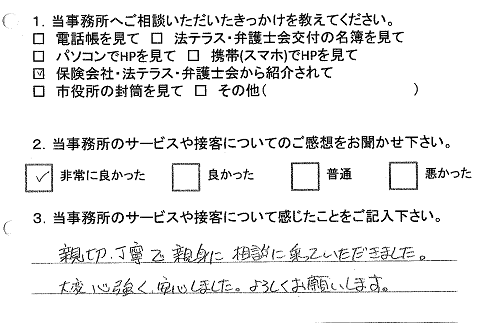 1. 当事務所へご相談いただいたきっかけを教えてください。
□ 電話帳を見て □ 法テラス・弁護士会交付の名簿を見て
□ パソコンでHPを見て □ 携帯(スマホ)でHPを見て
☑ 保険会社・法テラス・弁護士会から紹介されて
□ 市役所の封筒を見て □ その他( )
2. 当事務所のサービスや接客についてのご感想をお聞かせ下さい。
☑ 非常に良かった □ 良かった □ 普通 □ 悪かった
3. 当事務所のサービスや接客について感じたことをご記入下さい。
親切、丁寧で親身に相談に乗っていただきました。
大変心強く、安心しました。よろしくお願いします。